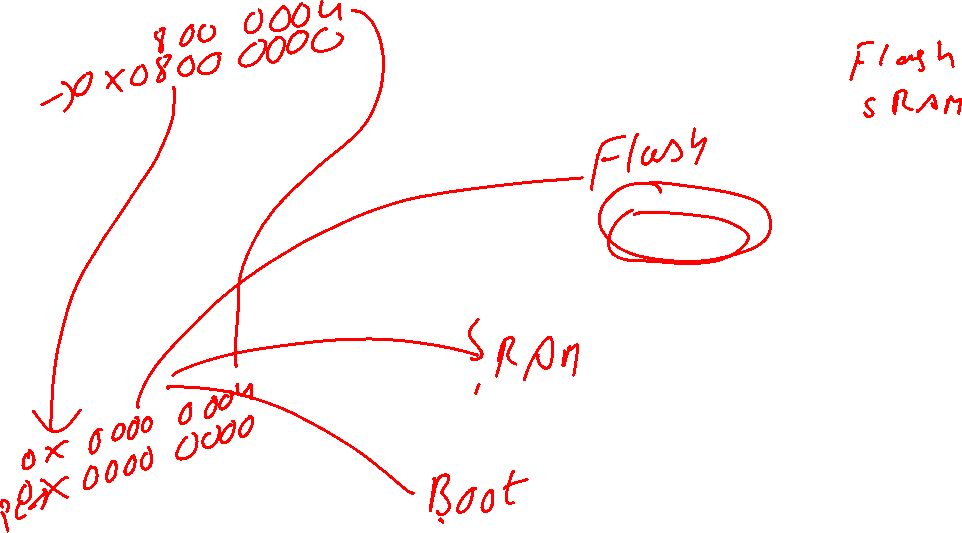 800 0004
→0x0800 0000
Flash
SRAM
Flash
SRAM
0x 0000 0004
0x 0000 0000
Boot